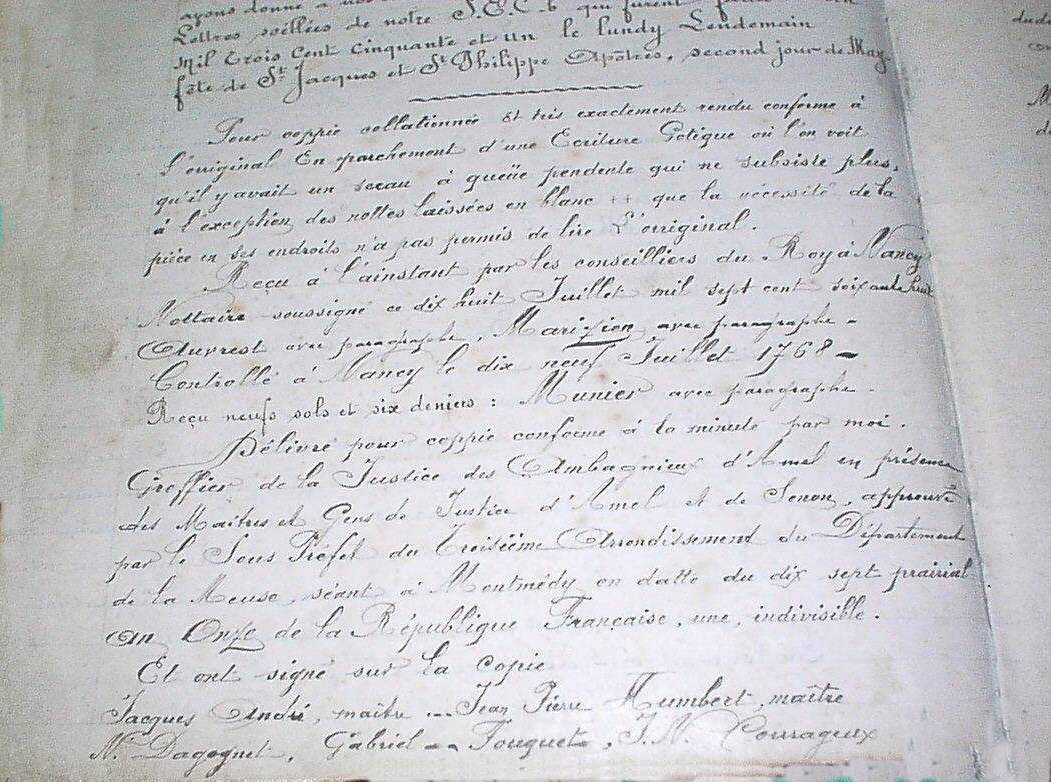 ayons donné a nos
Lettres scellées de notre S.E.C.b qui furent
mil trois cent cinquante et un le lundy Lendemain
fête de St Jacques et St Philippe Apotres, second jour de May
Pour coppie collationnée et très exactement rendu conforme à
l'original En parchement d'une Ecriture Gotique où l'on voit
qu'il y avait un sceau à queüe pendente qui ne subsiste plus,
à l'exception des nottes laissées en blanc ++ que la nécessité de la
pièce en ses endroits n'a pas permis de lire L'original.
Reçu à l'ainstant par les conseilliers du Roy à Nancy
Nottaire soussigné ce dix huit Juillet mil sept cent soixante huit
Auvrest avec paragraphe, Marizien avec paragraphe -
Controllé à Nancy le dix neuf Juillet 1768 -
Reçu neufs sols et six deniers : Munier avec paragraphe -
Délivré pour coppie conforme à la minute par moi.
Greffier de la Justice des Ambagnieux d'Amel en présence
des Maitres et Gens de Justice d'Amel et de Senon, approuvé
par le Sous Préfet du Troisième Arrondissement du Département
de la Meuse, séant à Montmédy en datte du dix sept prairial
an Onze de la République Française, une, indivisible.
Et ont signé sur la copie
Jacques André, maître -- Jean Pierre Humbert, maître
N. Dagognet, Gabriel -- Fouquet, J.N. Courageux
dude
M
de